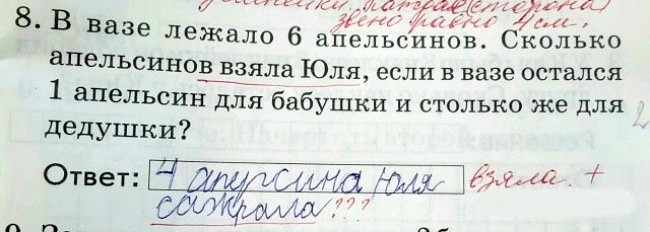 звено равно 4 см.
8. В вазе лежало 6 апельсинов. Сколько
апельсинов взяла Юля, если в вазе остался
1 апельсин для бабушки и столько же для
дедушки? 2
Ответ: 4 апурсина Юля взяла. +
сажрала???